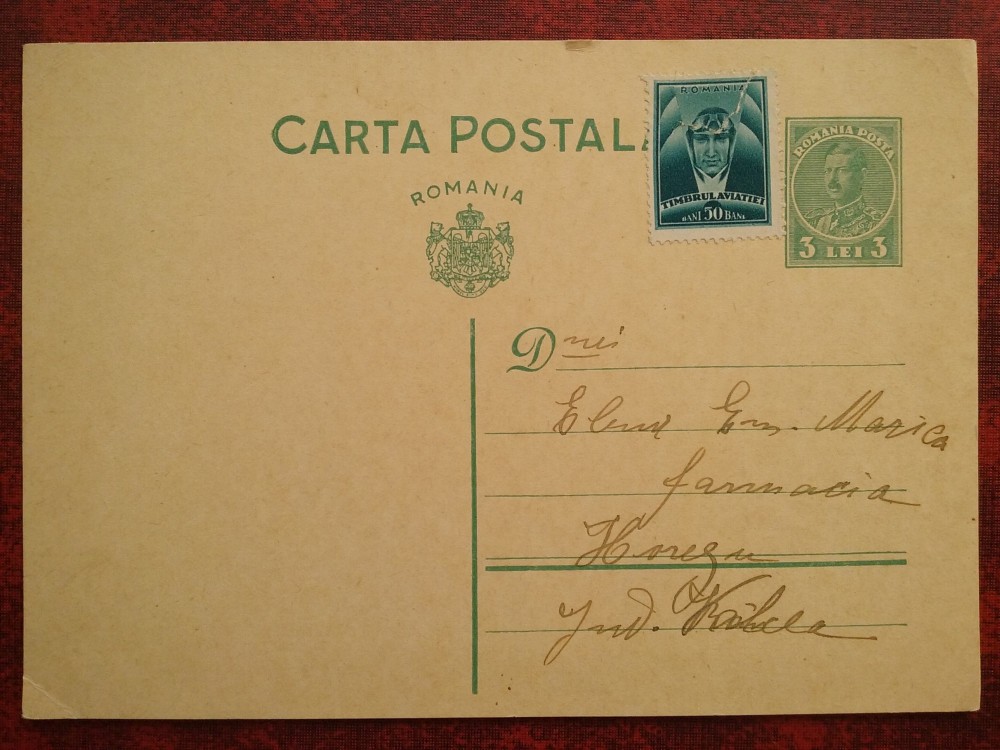 CARTA POSTAL
ROMANIA
ROMANIA
TIMBRUL AVIATIEI
BANI 50 BANI
ROMANIA POSTA
3 LEI 3
Dnei
Elena Em. Marica
farmacia
Horezu
Jud. Vâlcea